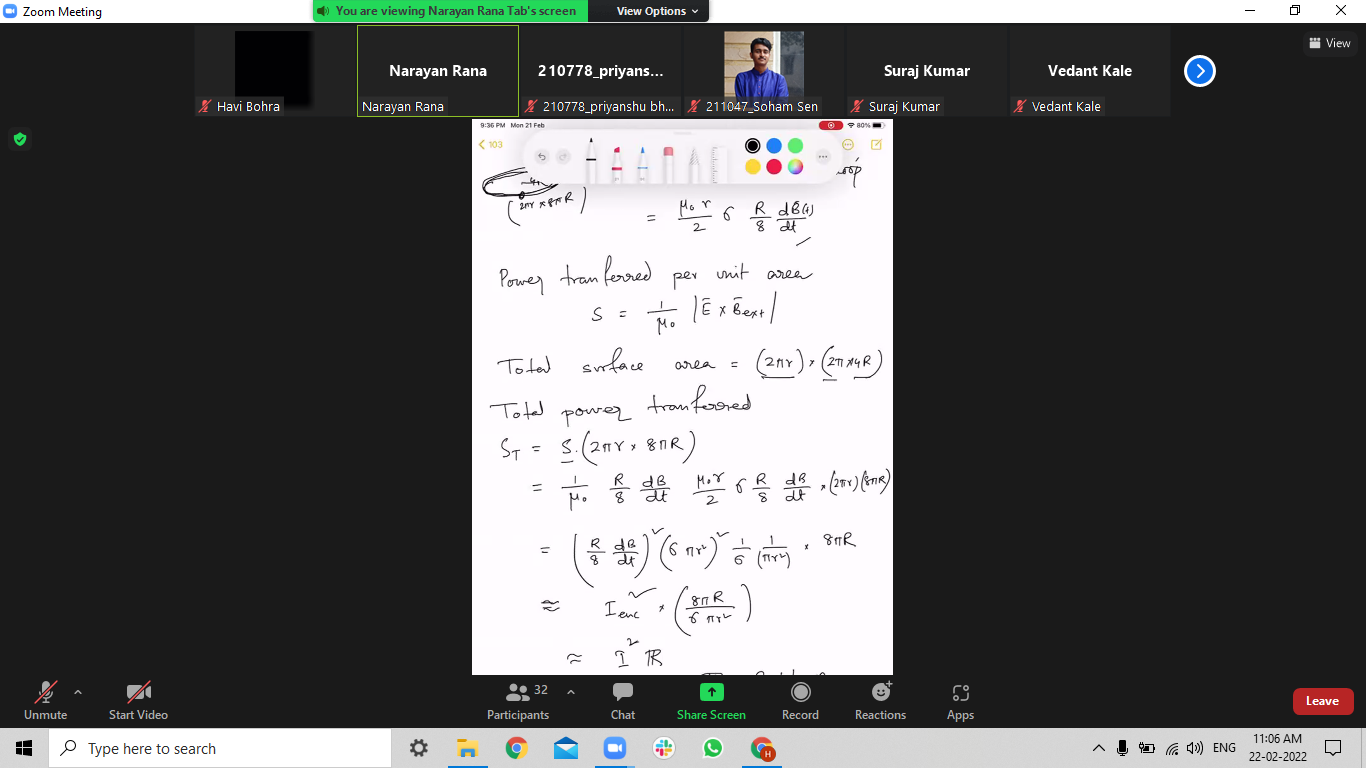 Zoom Meeting
You are viewing Narayan Rana Tab's screen
View Options
View
Narayan Rana
210778_priyans...
Suraj Kumar
Vedant Kale
Havi Bohra
Narayan Rana
210778_priyanshu bh...
211047_Soham Sen
Suraj Kumar
Vedant Kale
9:36 PM Mon 21 Feb
80%
103
(2πr × 8πR)
= μ₀ r/2 σ R/8 dB(t)/dt
Power tranferred per unit area
S = 1/μ₀ |Ē × B̄ext|
Total surface area = (2πr) × (2π×4R)
Total power tranferred
S_T = S.(2πr × 8πR)
= 1/μ₀ R/8 dB/dt μ₀r/2 σ R/8 dB/dt × (2πr)(8πR)
= (R/8 dB/dt)² (σ πr²)² 1/σ 1/(πr²) × 8πR
≈ I²enc × (8πR/σ πr²)
≈ I² R
Unmute
Start Video
32
Participants
Chat
Share Screen
Record
Reactions
Apps
Leave
Type here to search
H
ENG
11:06 AM
22-02-2022